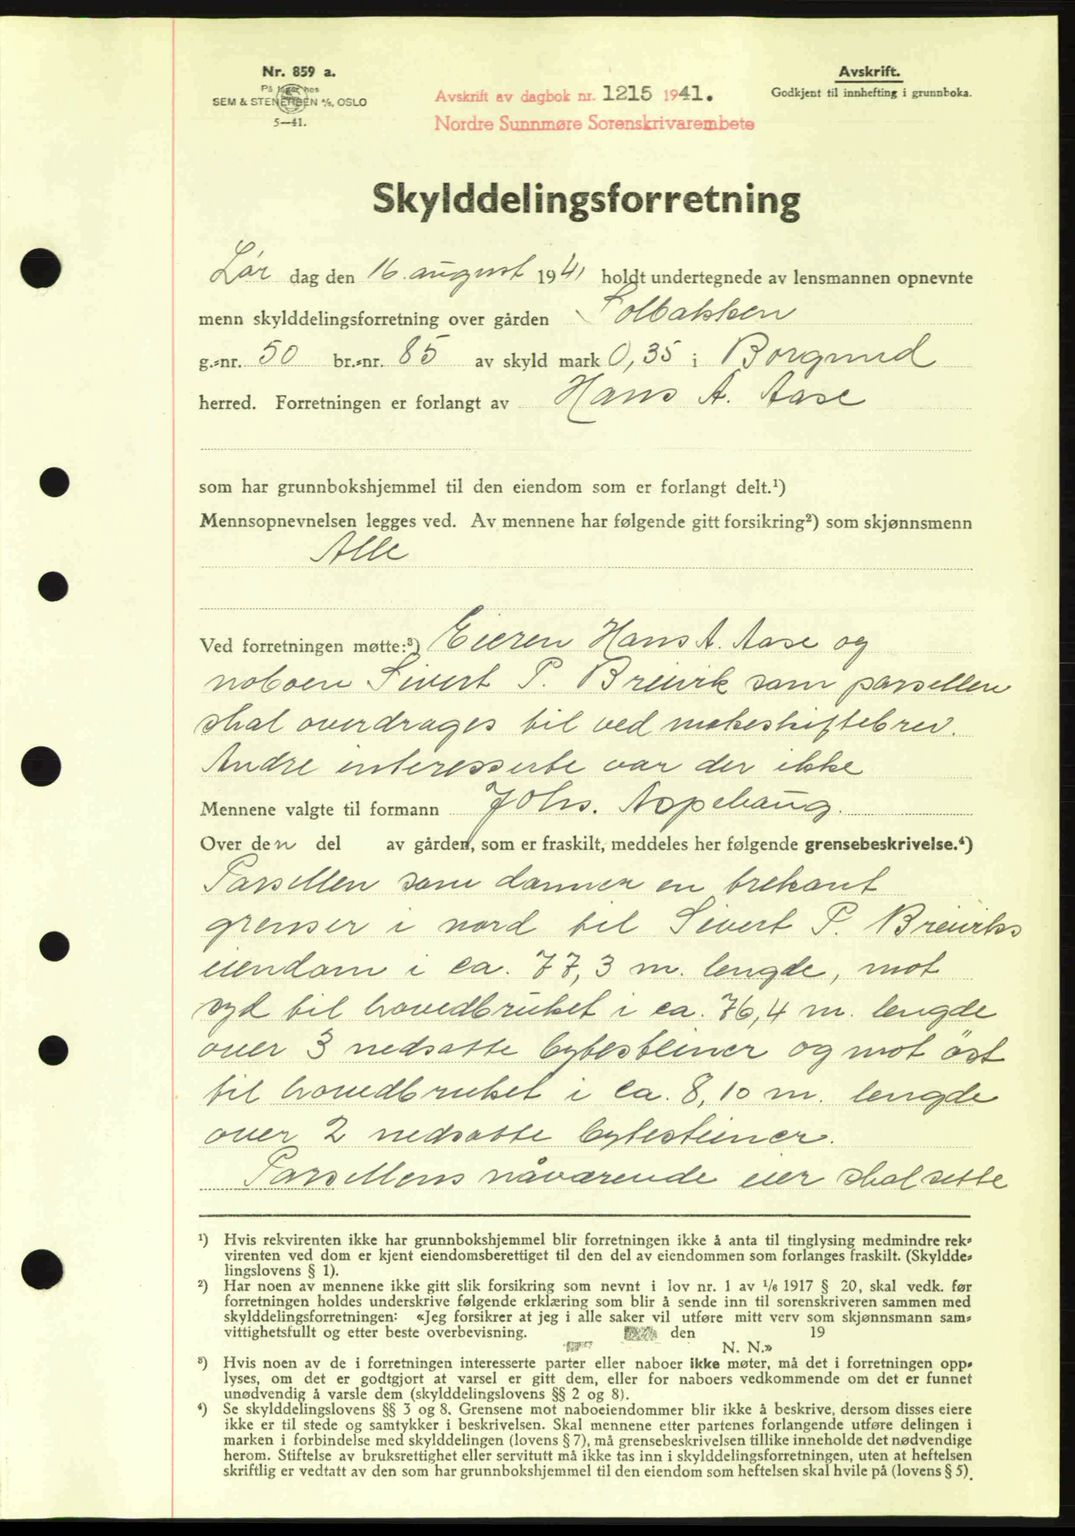 Nr. 859 a.
På lager hos
SEM & STENERSEN A/S, OSLO
5—41.
Avskrift av dagbok nr. 1215 1941.
Nordre Sunnmøre Sorenskrivarembete
Avskrift.
Godkjent til innhefting i grunnboka.
Skylddelingsforretning
Lør dag den 16. august 1941 holdt undertegnede av lensmannen opnevnte
menn skylddelingsforretning over gården Solbakken
g.-nr. 50 br.-nr. 85 av skyld mark 0,35 i Borgund
herred. Forretningen er forlangt av Hans A. Aase
som har grunnbokshjemmel til den eiendom som er forlangt delt.¹)
Mennsopnevnelsen legges ved. Av mennene har følgende gitt forsikring²) som skjønnsmenn
Alle
Ved forretningen møtte:³) Eieren Hans A. Aase og
naboen Sivert P. Breivik som parsellen
skal overdrages til ved makeskiftebrev.
Andre interesserte var der ikke
Mennene valgte til formann Johs. Aspehaug.
Over den del av gården, som er fraskilt, meddeles her følgende grensebeskrivelse.⁴)
Parsellen som danner en trekant
grenser i nord til Sivert P. Breiviks
eiendom i ca. 77,3 m. lengde, mot
syd til hovedbruket i ca. 76,4 m. lengde
over 3 nedsatte bytesteiner og mot øst
til hovedbruket i ca. 8,10 m. lengde
over 2 nedsatte bytesteiner.
Parsellens nåværende eier skal sette
¹) Hvis rekvirenten ikke har grunnbokshjemmel blir forretningen ikke å anta til tinglysing medmindre rek-
virenten ved dom er kjent eiendomsberettiget til den del av eiendommen som forlanges fraskilt. (Skyldde-
lingslovens § 1).
²) Har noen av mennene ikke gitt slik forsikring som nevnt i lov nr. 1 av 1/6 1917 § 20, skal vedk. før
forretningen holdes underskrive følgende erklæring som blir å sende inn til sorenskriveren sammen med
skylddelingsforretningen: «Jeg forsikrer at jeg i alle saker vil utføre mitt verv som skjønnsmann sam-
vittighetsfullt og etter beste overbevisning. den 19
N. N.»
³) Hvis noen av de i forretningen interesserte parter eller naboer ikke møter, må det i forretningen opp-
lyses, om det er godtgjort at varsel er gitt dem, eller for naboers vedkommende om det er funnet
unødvendig å varsle dem (skylddelingslovens §§ 2 og 8).
⁴) Se skylddelingslovens §§ 3 og 8. Grensene mot naboeiendommer blir ikke å beskrive, dersom disses eiere
ikke er til stede og samtykker i beskrivelsen. Skal mennene etter partenes forlangende utføre delingen i
marken i forbindelse med skylddelingen (lovens § 7), må grensebeskrivelsen tillike inneholde det nødvendige
herom. Stiftelse av bruksrettighet eller servitutt må ikke tas inn i skylddelingsforretningen, uten at heftelsen
skriftlig er vedtatt av den som har grunnbokshjemmel til den eiendom som heftelsen skal hvile på (lovens § 5).